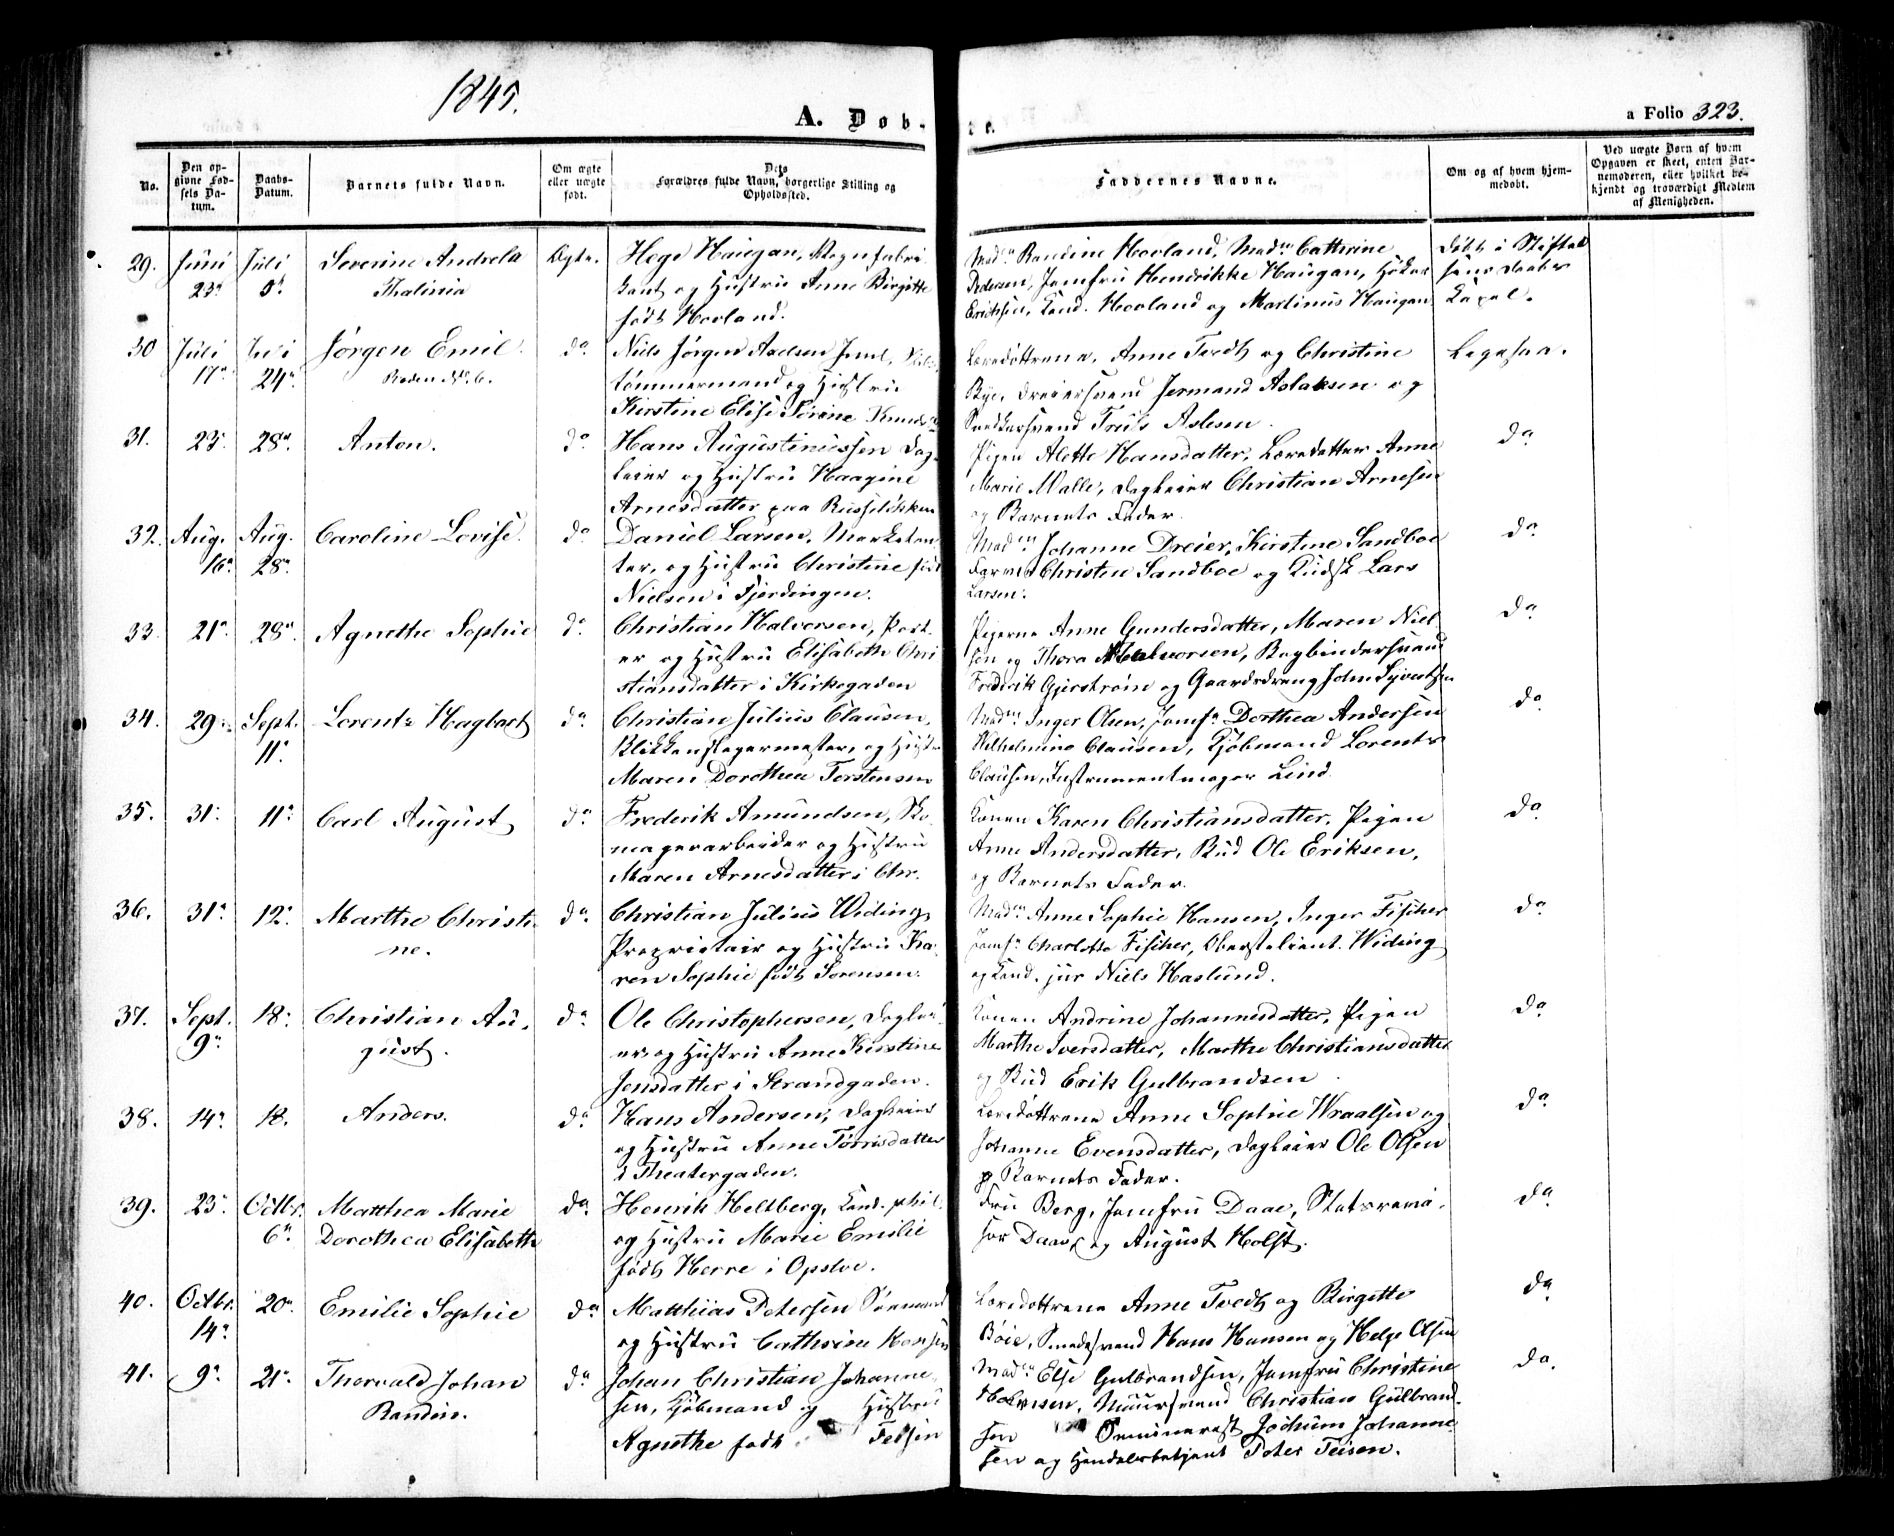 1845.
A. Døb-
te.
a Folio 323.
No.
Den op-
givne Fød-
sels Da-
tum.
Daabs-
Datum.
Barnets fulde Navn.
Om ægte
eller uægte
født.
Dets
Forældres fulde Navn, borgerlige Stilling og
Opholdssted.
Faddernes Navne.
Om og af hvem hjem-
medøbt.
Ved uægte Børn af hvem
Opgaven er skeet, enten Bar-
nemoderen, eller hvilket be-
kjendt og troværdigt Medlem
af Menigheden.
29. Juni 23de Juli Severine Andrea
Thalinia
Ægte.
Hege Haugan, Vognfabri-
kant og Hustru Anne Birgitte
født Hovland.
Madm Randine Hovland, Madm Cathrine
Pedersen, Jomfru Hendrikke Haugan, Høker
Erichsen, Cand. Hovland og Martinus Haugan
Døbt i Stiftel-
sens Daabs
Capel.
30 Juli 17de Juli 24de Jørgen Emil.
Roden No. 6.
do
Niels Jørgen Axelsen
tømmermand og Hustru
Kirstine Elise Sirine
Læredøttrene, Anne Tvedt og Christine
Bye, Dreiersvend Jermand Aslaksen og
Snedkersvend Truls Aslesen.
Ligesaa.
31. 23de 28de Anton. do
Hans Augustinussen Dag-
leier og Hustru Haagine
Arnesdatter paa Russeløkken
Pigen Alette Hansdatter, Læredatter Anne
Marie Malle, Dagleier Christian Arnesen
og Barnets Fader.
do
32. Aug. 16de Aug. 28de Caroline Lovise. do
Daniel Larsen, Marketen-
ter, og Hustru Christine født
Nielsen i Fjerdingen.
Madm Johanne Dreier, Kirstine Sandboe
Farver Christen Sandboe og Kudsk Lars
Larsen.
do
33. 21de 28de Agnethe Sophie do
Christian Halvorsen, Port-
ør og Hustru Elisabeth Chri-
stiansdatter i Kirkegaden
Pigerne Anne Gundersdatter, Maren Niel-
sen og Thora Halvorsen, Bogbindersvend
Frederik Gjerstrøm og Gaardsdreng John Syvertsen
do
34. 29de Sept. 11te Lorentz Hagbart do
Christian Julius Clausen,
Blikkenslagermester, og Hustru
Maren Dorothea Torstensen
Madm Inger Olsen, Jomfr Dorthea Andersen
Wilhelmine Clausen, Kjøbmand Lorents
Clausen, Instrumentmager Lind.
do
35. 31te 11te Carl August do
Frederik Amundsen, Sko-
magerarbeider og Hustru
Maren Arnesdatter i Chr.
Konen Karen Christiansdatter, Pigen
Anne Andersdatter, Bud Ole Eriksen,
og Barnets Fader.
do
36. 31te 12te Marthe Christi-
ne. do
Christian Julius Widing,
Proprietair og Hustru Ka-
ren Sophie født Sørensen.
Madm Anne Sophie Hansen, Inger Fischer
Jomfr Charlotte Fischer, Oberstlieut. Widing
og Cand. jur Niels Haslund.
do
37. Sept. 9de 18de Christian Au-
gust. do
Ole Christophersen, Daglei-
er, og Hustru Anne Kirstine
Jensdatter i Strandgaden.
Konen Andrine Johannesdatter, Pigen
Marthe Iversdatter, Marthe Christiansdatter
og Bud Erik Gulbrandsen.
do
38. 14de 18. Anders. do
Hans Andersen, Dagleier
og Hustru Anne Torrisdatter
i Theatergaden.
Læredøttrene Anne Sophie Wraalsen og
Johanne Evensdatter, Dagleier Ole Olsen
og Barnets Fader.
do
39. 23de Octbr. 6te Matthea Marie
Dorothea Elisabeth do
Henrik Heltberg, Cand. phil.
og Hustru Marie Emilie
født Herre i Opsloe.
Fru Berg, Jomfru Daae, Statsrevi-
sor Daae, og August Holst.
do
40. Octbr. 14de 20de Emilie Sophie do
Matthias Petersen Sømand
og Hustru Cathrine Hansen
Læredøttrene Anne Tvedt og Birgitte
Bøie, Smedesvend Hans Hansen og Helge Olsen
do
41. 9de 21de Thorvald Johan
Randin. do
Johan Christian Johanne-
sen, Kjøbmand og Hustru
Agnethe født Feisen
Madm Else Gulbrandsen, Jomfru Christine
Halvorsen, Muursvend Christian Gulbrand-
sen Seminarist Jochum Johanne-
sen og Handelsbetjent Peter Feisen.
do.